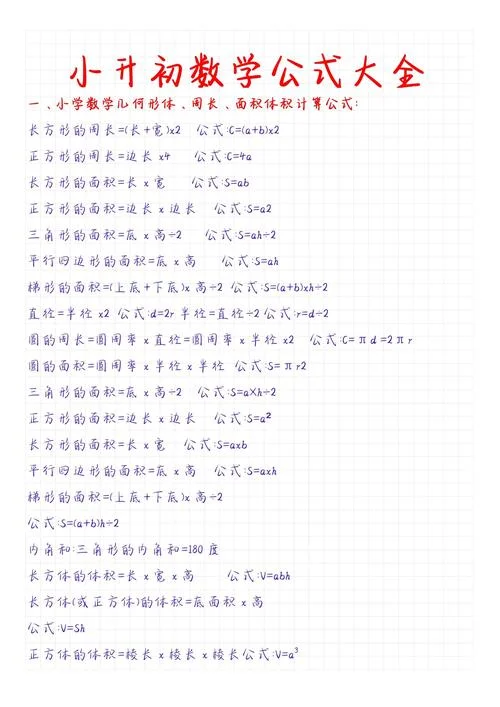 小升初数学公式大全
一、小学数学几何形体、周长、面积体积计算公式:
长方形的周长=(长+宽)x2 公式:C=(a+b)x2
正方形的周长=边长 x4 公式:C=4a
长方形的面积=长 x 宽 公式:S=ab
正方形的面积=边长 x 边长 公式:S=a2
三角形的面积=底 x 高÷2 公式:S=ah÷2
平行四边形的面积=底 x 高 公式:S=ah
梯形的面积=(上底+下底)x 高÷2 公式:S=(a+b)xh÷2
直径=半径 x2 公式:d=2r 半径=直径÷2 公式:r=d÷2
圆的周长=圆周率 x 直径=圆周率 x 半径 x2 公式:C=πd =2πr
圆的面积=圆周率 x 半径 x 半径 公式:S=πr2
三角形的面积=底 x 高÷2 公式:S=aXh÷2
正方形的面积=边长 x 边长 公式:S=a²
长方形的面积=长 x 宽 公式:S=axb
平行四边形的面积=底 x 高 公式:S=axh
梯形的面积=(上底+下底)x 高÷2
公式:S=(a+b)h÷2
内角和:三角形的内角和=180 度
长方体的体积=长 x 宽 x 高 公式:V=abh
长方体(或正方体)的体积=底面积 x 高
公式:V=Sh
正方体的体积=棱长 x 棱长 x 棱长公式:V=a³